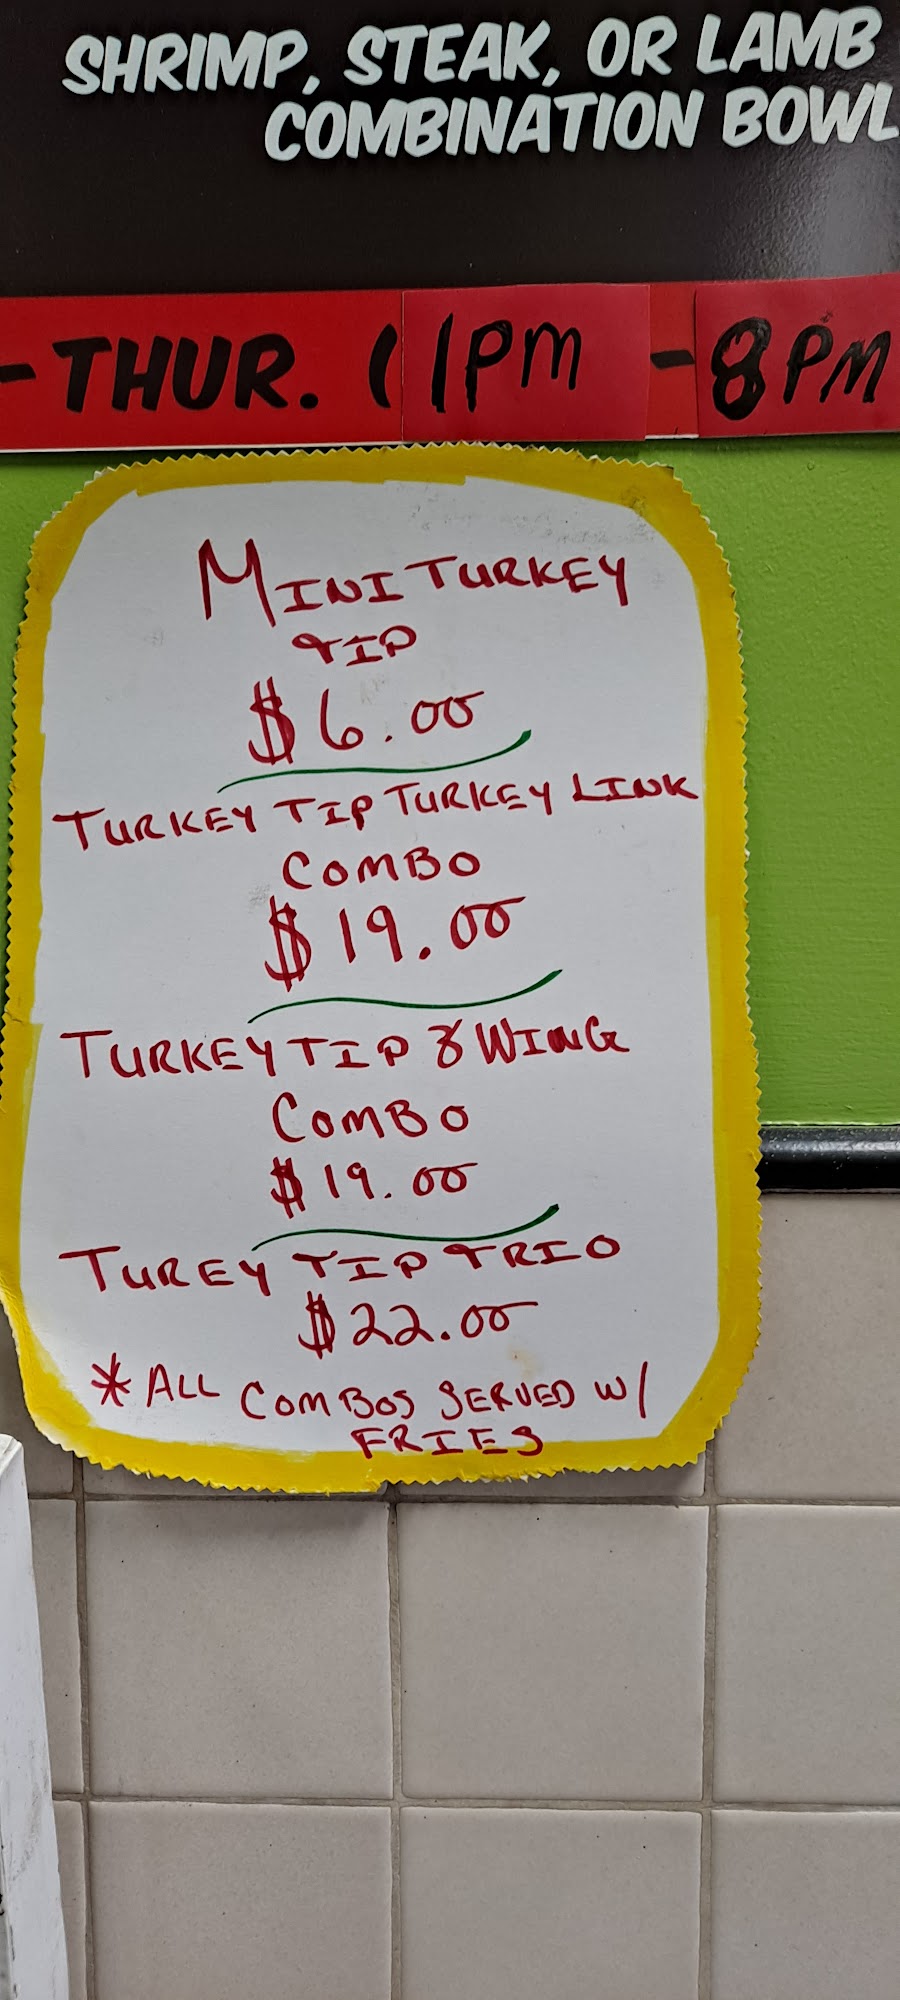 SHRIMP, STEAK, OR LAMB
COMBINATION BOWL
- THUR. (1PM - 8PM
MINI TURKEY
TIP
$6.00
TURKEY TIP TURKEY LINK
COMBO
$19.00
TURKEY TIP & WING
COMBO
$19.00
TUREY TIP TRIO
$22.00
*ALL COMBOS SERVED W/
FRIES